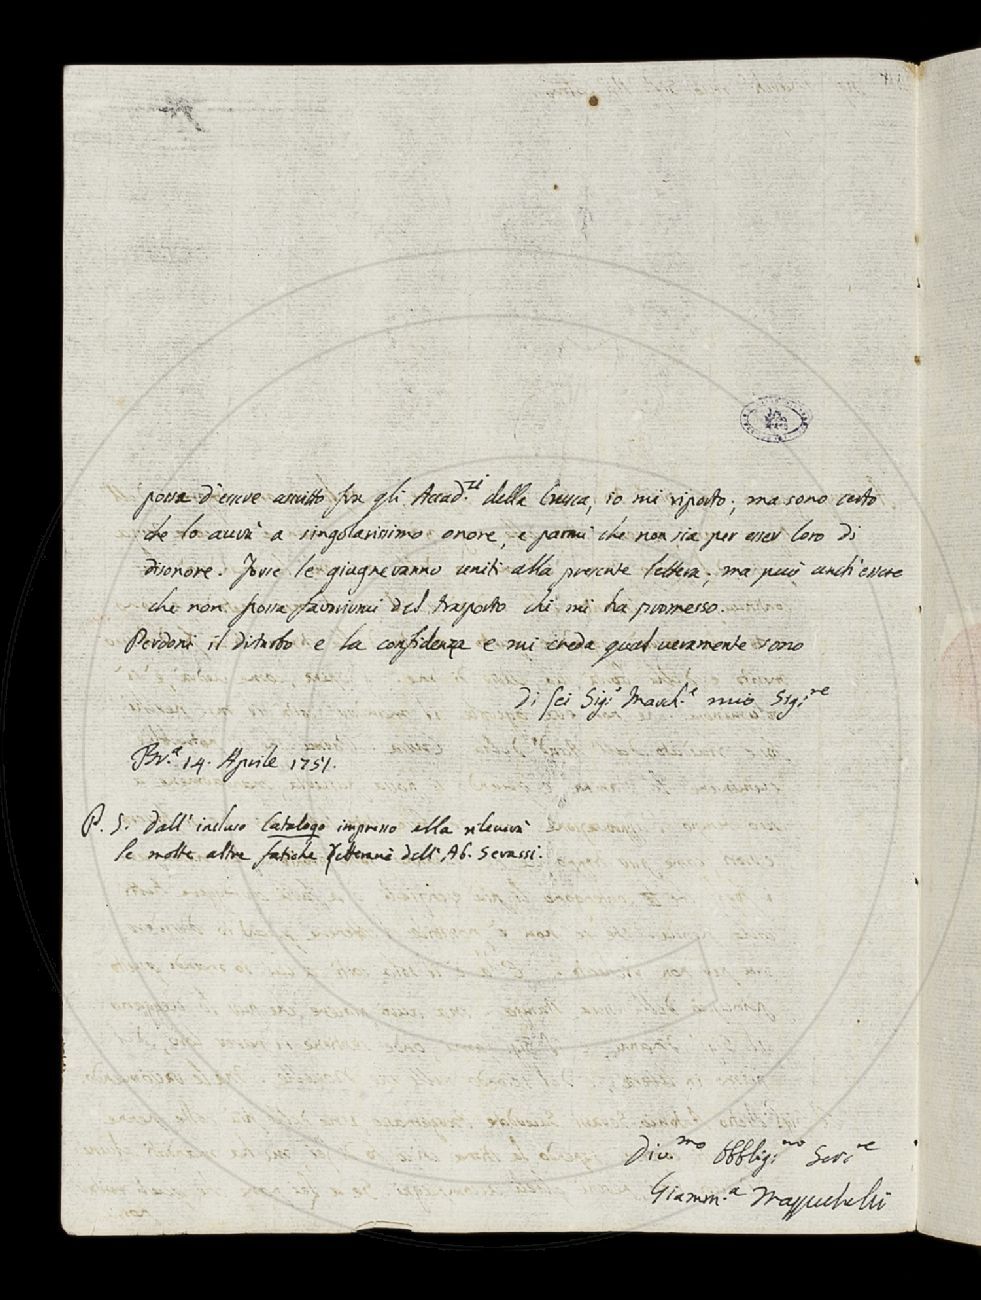 possa d'essere ascritto fra gli Accad.ci della Crusca, io mi riporto; ma sono certo
che lo avrà a singolarissimo onore, e parmi che non sia per esser loro di
disonore. Forse le giugneranno uniti alla presente lettera, ma può anch'essere
che non possa favorirmi del trasporto chi mi ha promesso.
Perdoni il disturbo e la confidenza e mi creda qual veramente sono
Di Lei Sig.r March.e mio Sig.re
Br.a 14. Aprile 1751.
P. S. Dall' incluso Catalogo impresso ella rileverà
le molte altre fatiche letterarie dell' Ab. Serassi.
Div.mo Obblig.mo Ser.re
Giamm.a Mazzuchelli